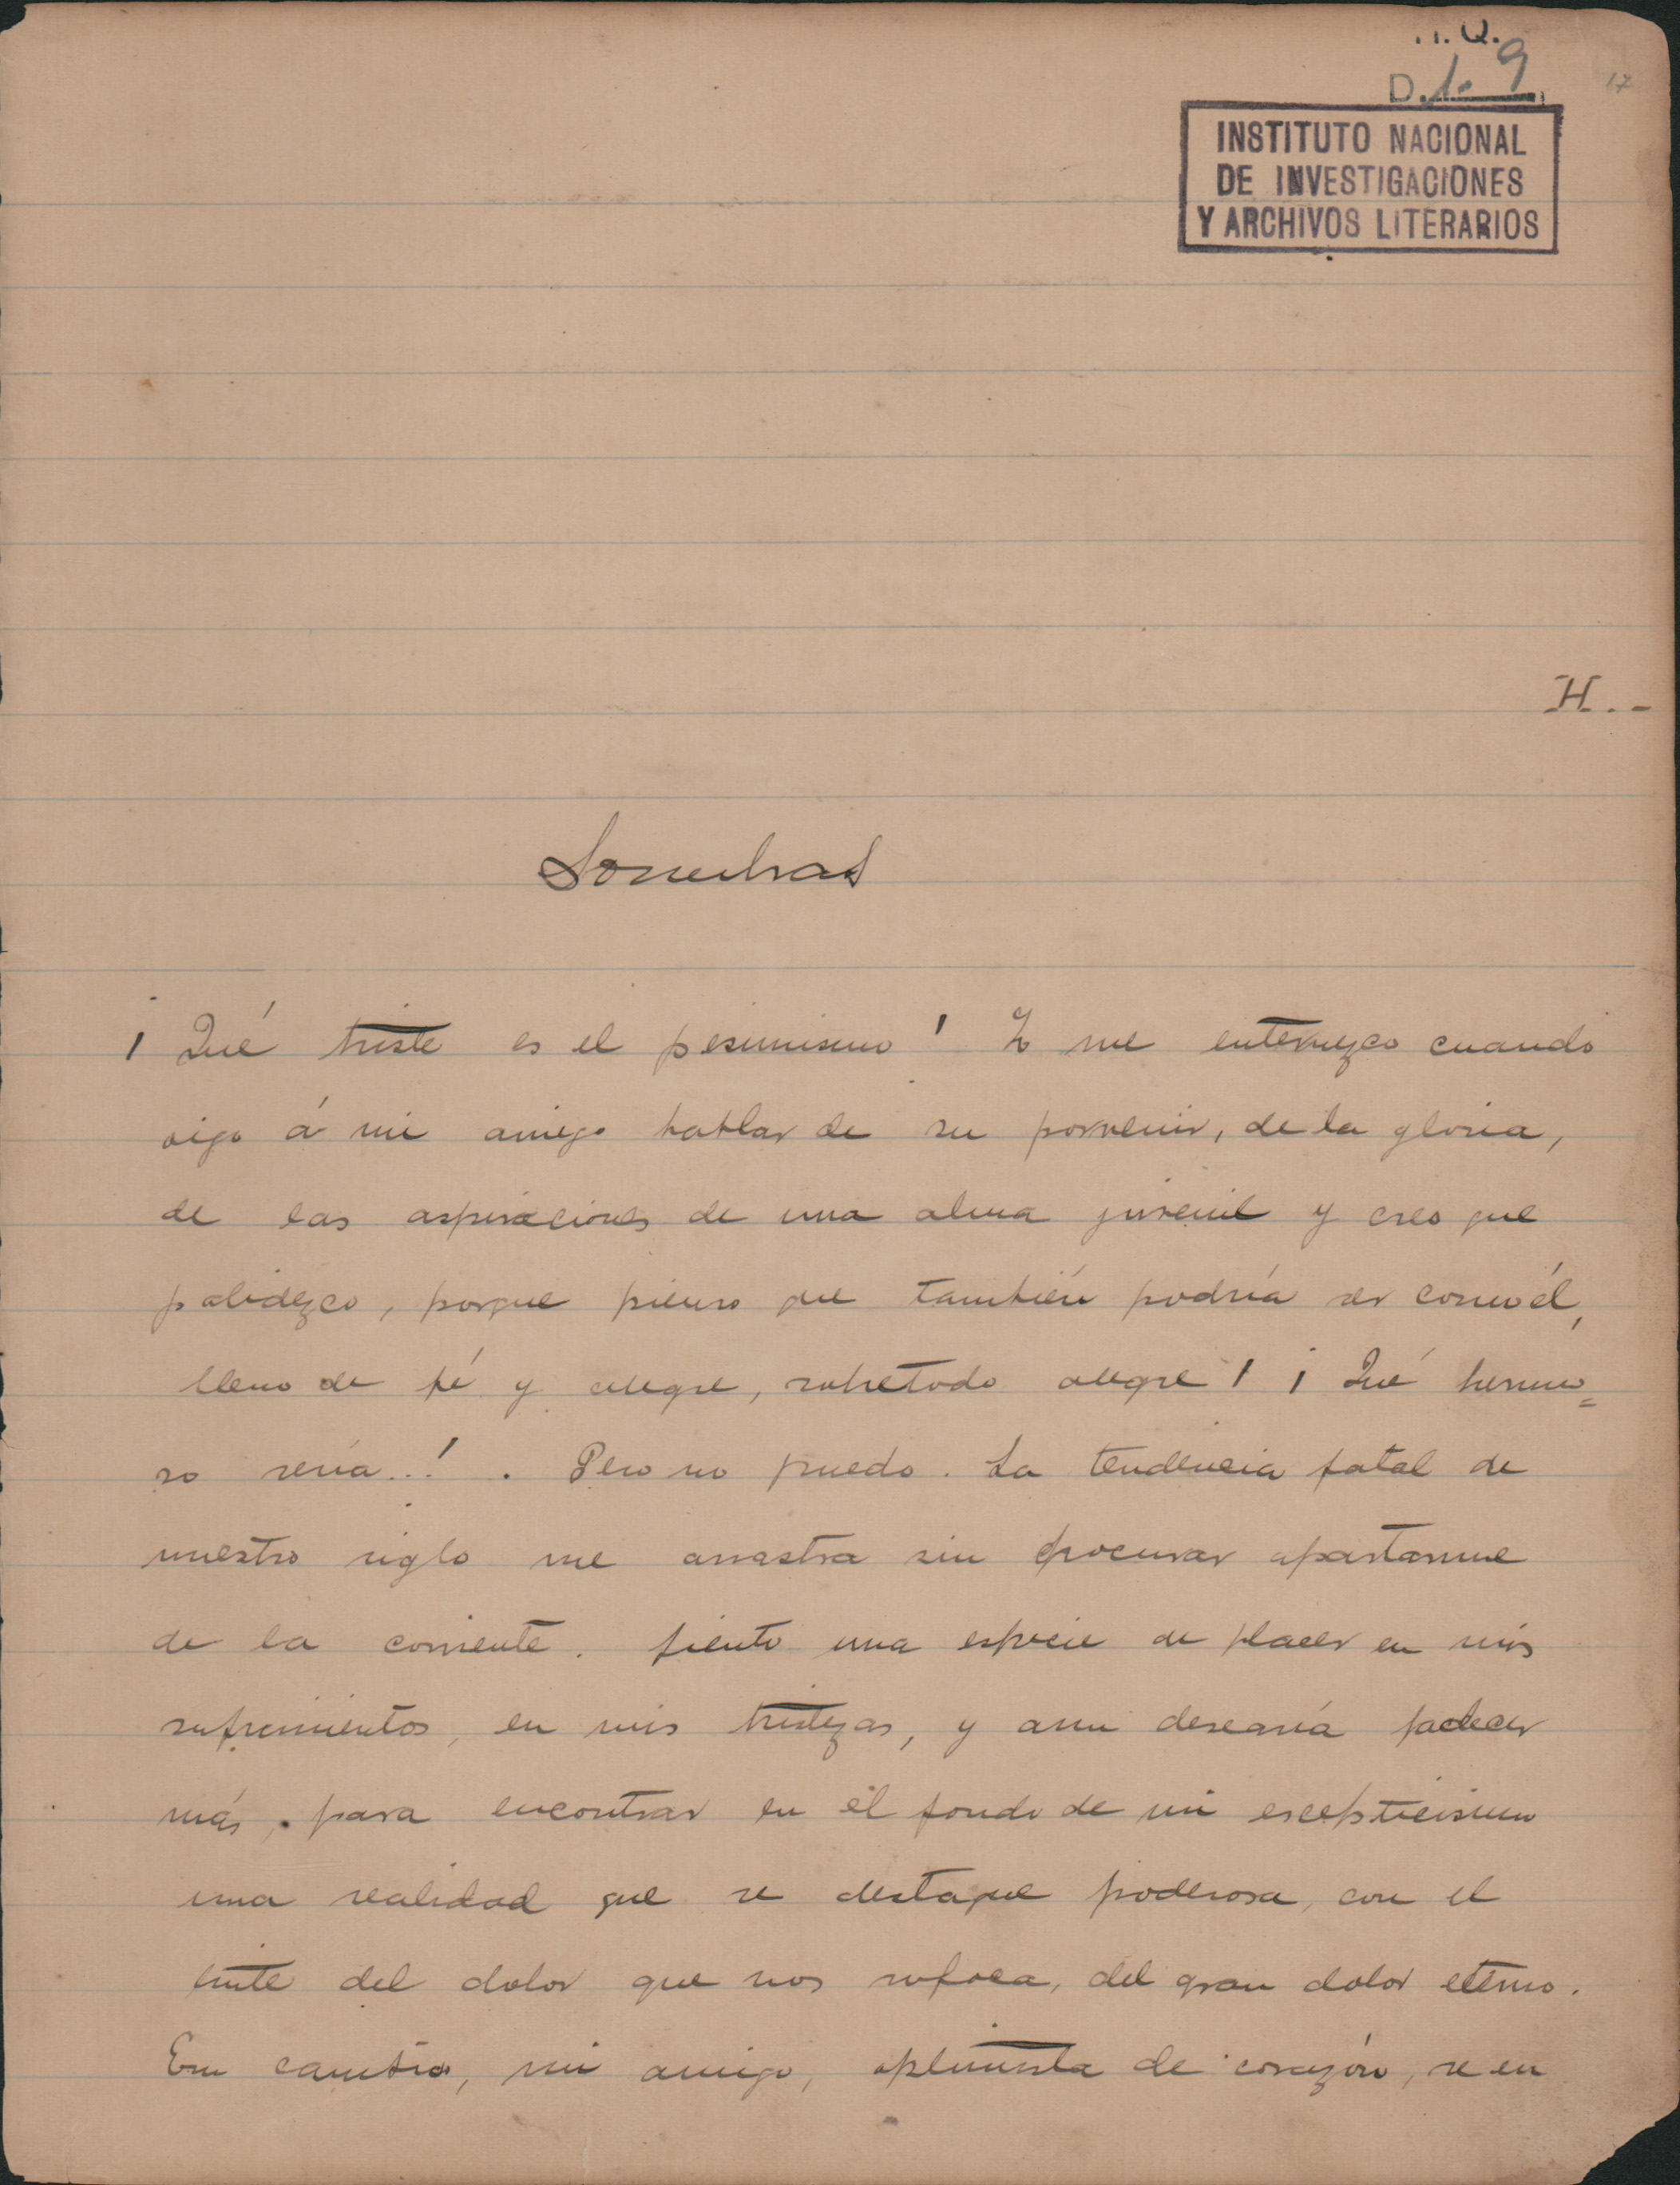 H. Q.
D.1.9
17
INSTITUTO NACIONAL
DE INVESTIGACIONES
Y ARCHIVOS LITERARIOS
H..-
Sombras
¡Qué triste es el pesimismo! Y me enternezco cuando
oigo á mi amigo hablar de su porvenir, de la gloria,
de las aspiraciones de una alma juvenil y creo que
palidezco, porque pienso que también podría ser como él,
lleno de fé y alegre, sobretodo alegre! ¡Qué hermo=
so sería..! . Pero no puedo. La tendencia fatal de
nuestro siglo me arrastra sin procurar apartarme
de la corriente. Siento una especie de placer en mis
sufrimientos, en mis tristezas, y aun desearía padecer
más, para encontrar en el fondo de mi escepticismo
una realidad que se destaque poderosa, con el
tinte del dolor que nos sofoca, del gran dolor eterno.
En cambio, mi amigo, optimista de corazón, se en